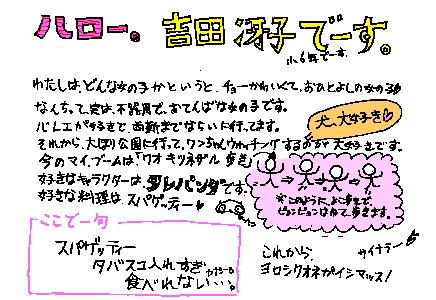 ハロー。吉田 冴子でーす。
小6年でーす。
わたしは、どんな女の子かというと、チョーかわいくて、おひとよしの女の子
なんちって、実は、不器用で、おてんばな女の子です。
バレエが好きで、西新までならいに行ってます。
それから、大濠公園に行って、ワンちゃんウォッチングするのが大好きです。
犬、大好き♡
今のマイブームは「ワオキツネザル歩き」
好きなキャラクターは、タレパンダです。
好きな料理は スパゲッティー♡
*このように、よこ歩きで、
ピョンピョンはねて歩きます。
ここで一句
スパゲッティー
タバスコ入れすぎ
食べれない…。
カラーイ
これから、
ヨロシクオネガイシマッス!